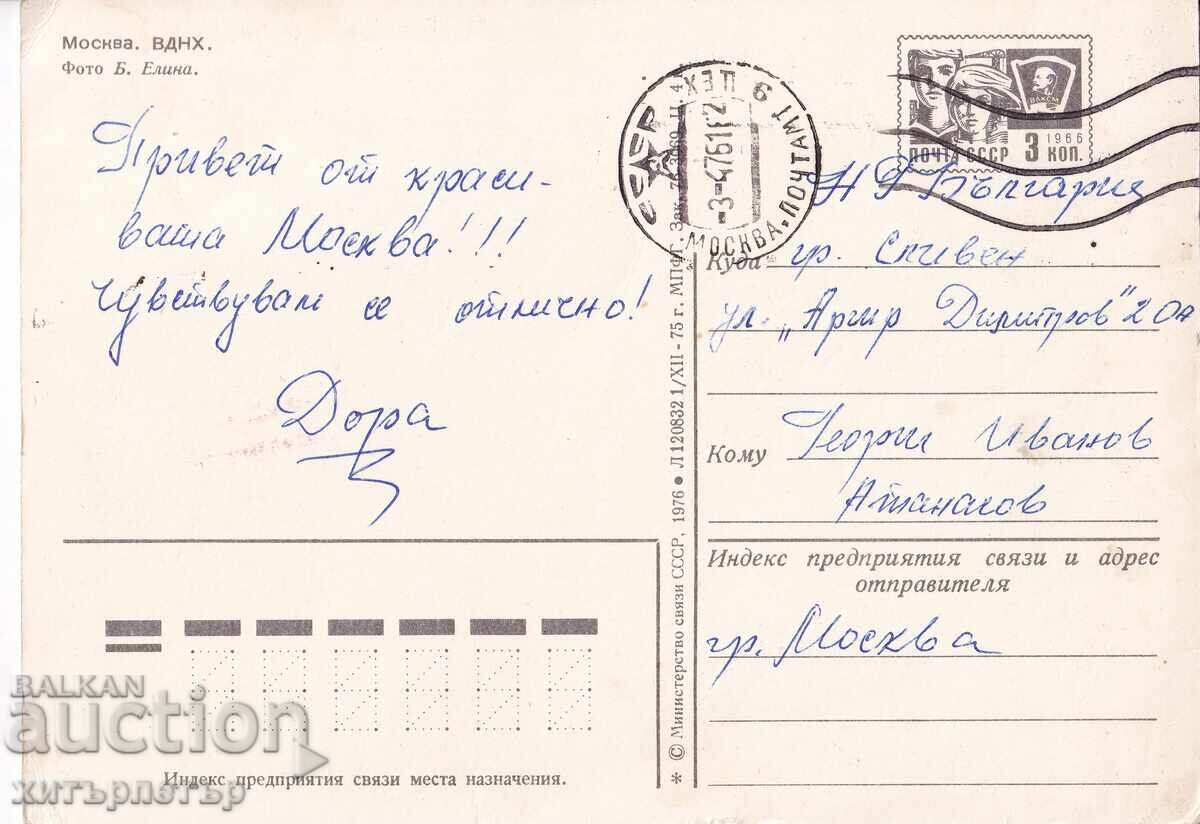 Москва. ВДНХ.
Фото Б. Елина.
Привет от краси-
ваша Москва!!!
Чувствувам се отлично!
Дора
Индекс предприятия связи места назначения.
* © Министерство связи СССР, 1976 • Л120832 1/XII - 75 г. МПФГ. Зак. 763669. Ц. 4
СССР
МОСКВА-ПОЧТАМТ
9 ЦЕХ
ВЛКСМ
1966
ПОЧТА СССР 3 КОП.
НР България
Куда гр. Сливен
ул. „Аргир Димитров" 20А
Кому Георги Иванов
Атанасов
Индекс предприятия связи и адрес
отправителя
гр. Москва
BALKAN
auction
хитърпетър